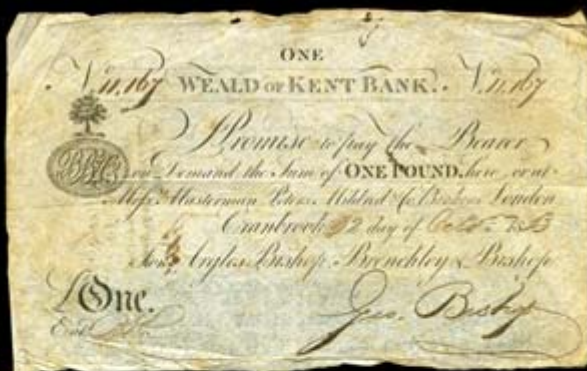 ONE
N. 11,167 WEALD OF KENT BANK. N. 11,167
I Promise to pay the Bearer
on Demand the Sum of ONE POUND, here or at
Mess.rs Masterman Peters Mildred & Co. Bankers London
Cranbrook 12 day of Octr. 1813
For Argles Bishop Brenchley & Bishop
£ One.
Geo. Bishop
Entd.